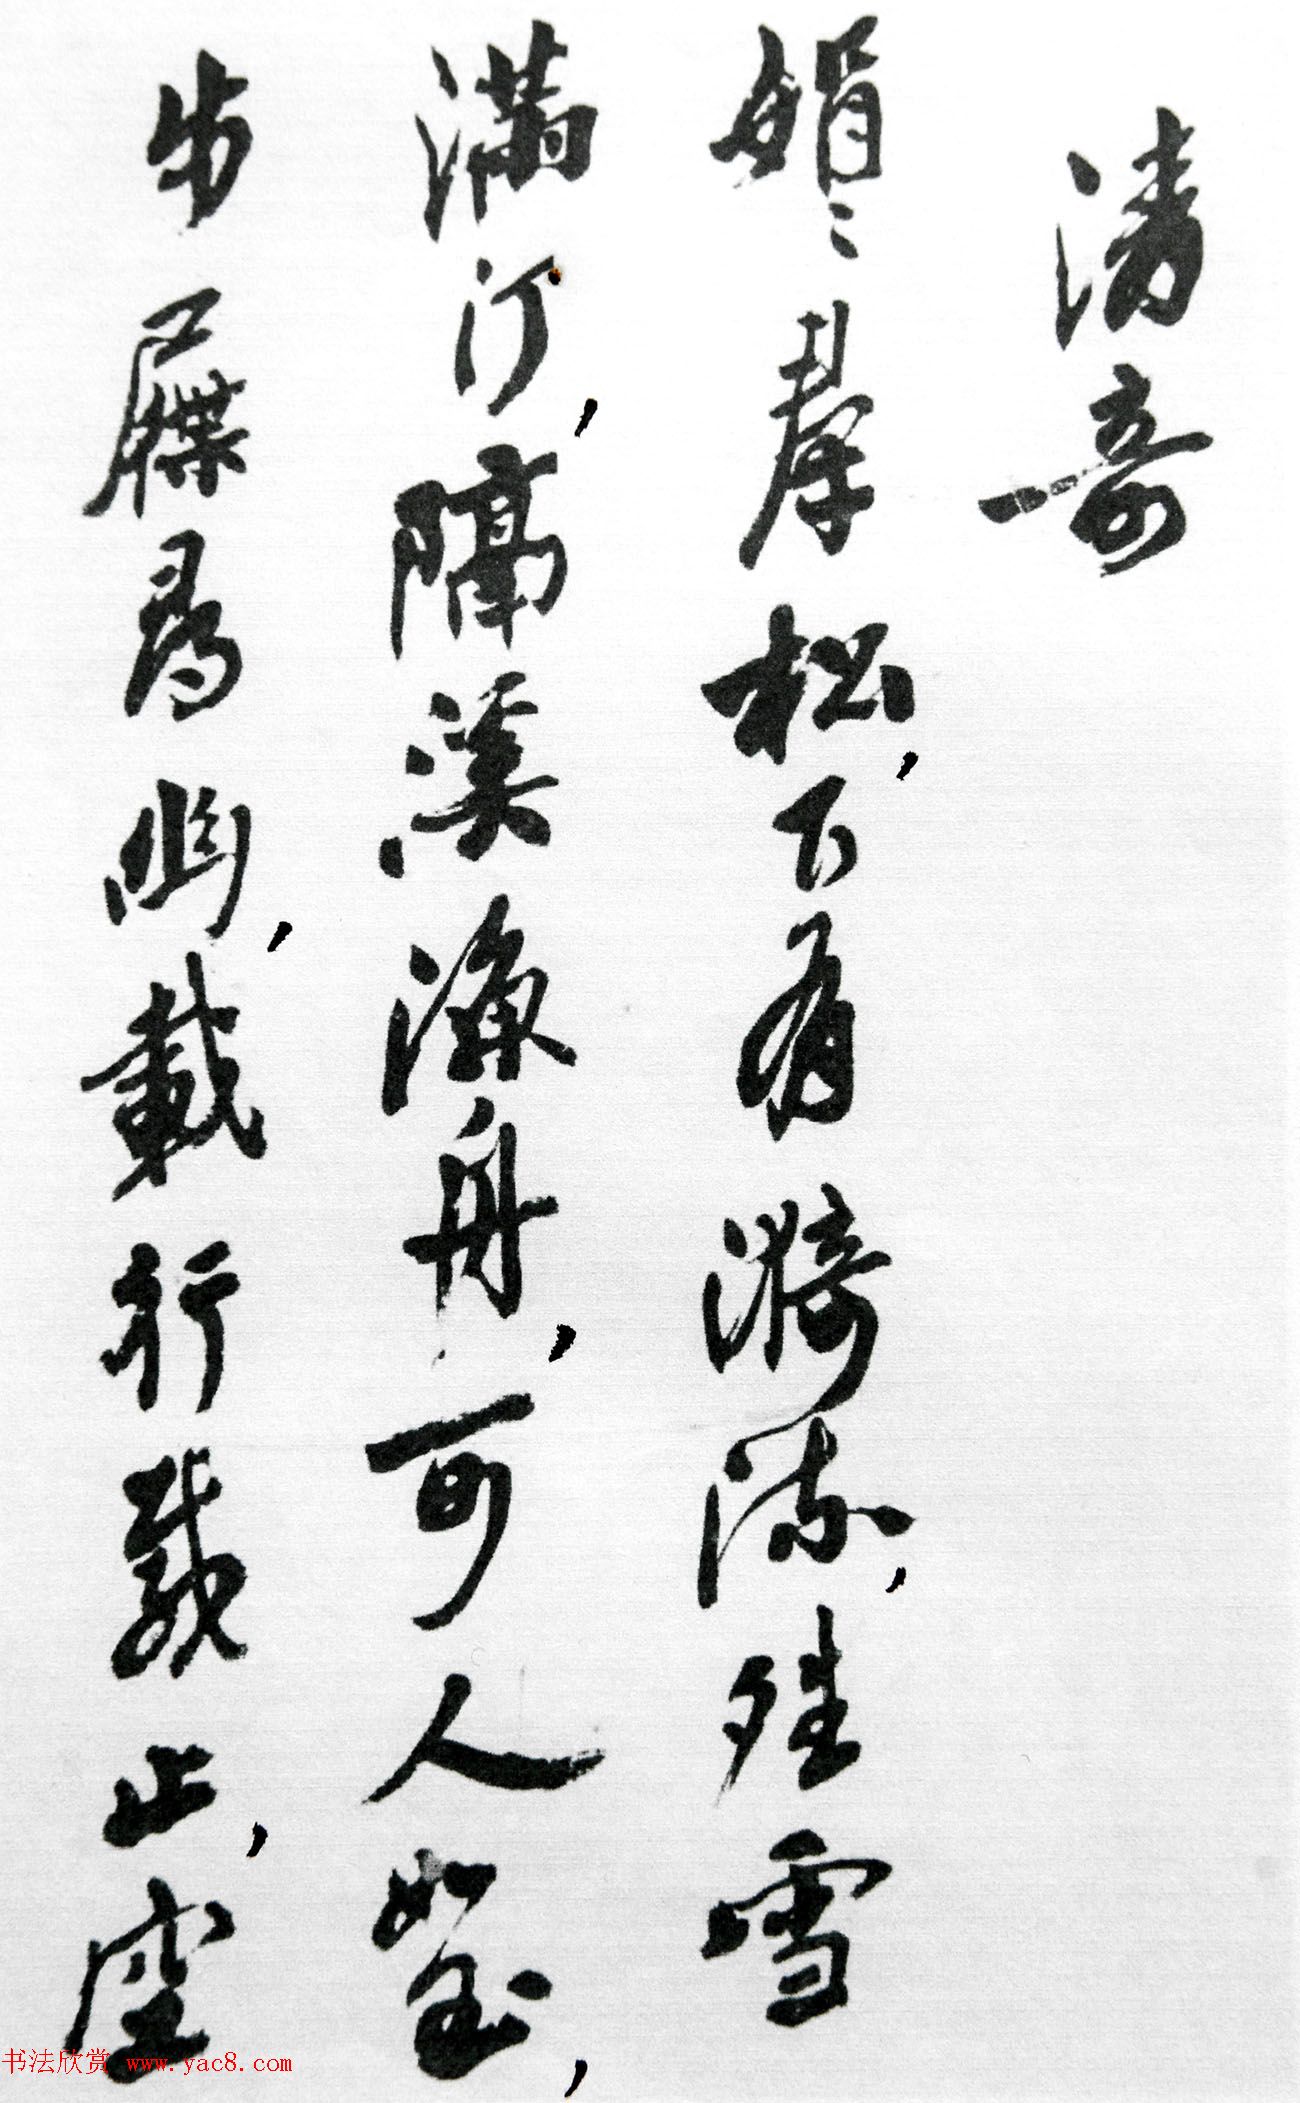 清奇
娟〻羣松,下有漪流,夝雪
滿汀,隔溪漁舟,可人如玉,
步屧尋幽,載行載止,空
书法欣赏 www.yac8.com